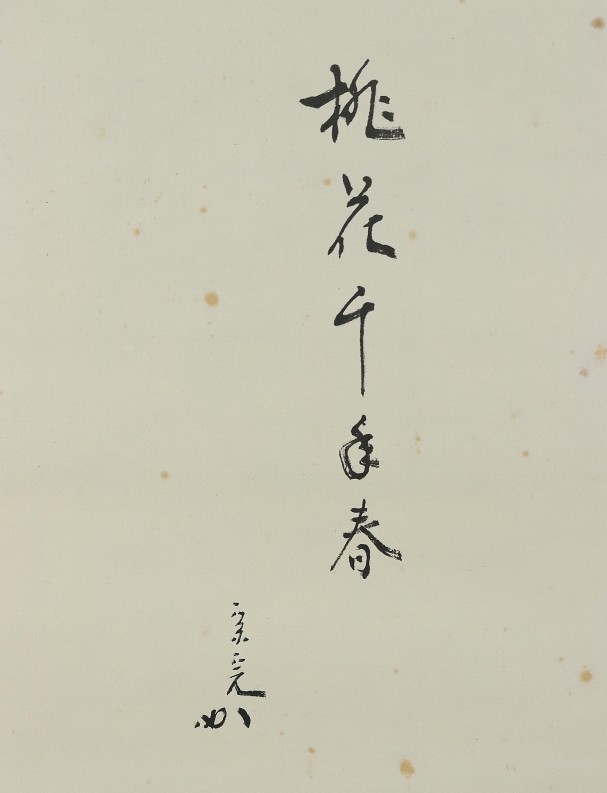 桃花千年春
宗完